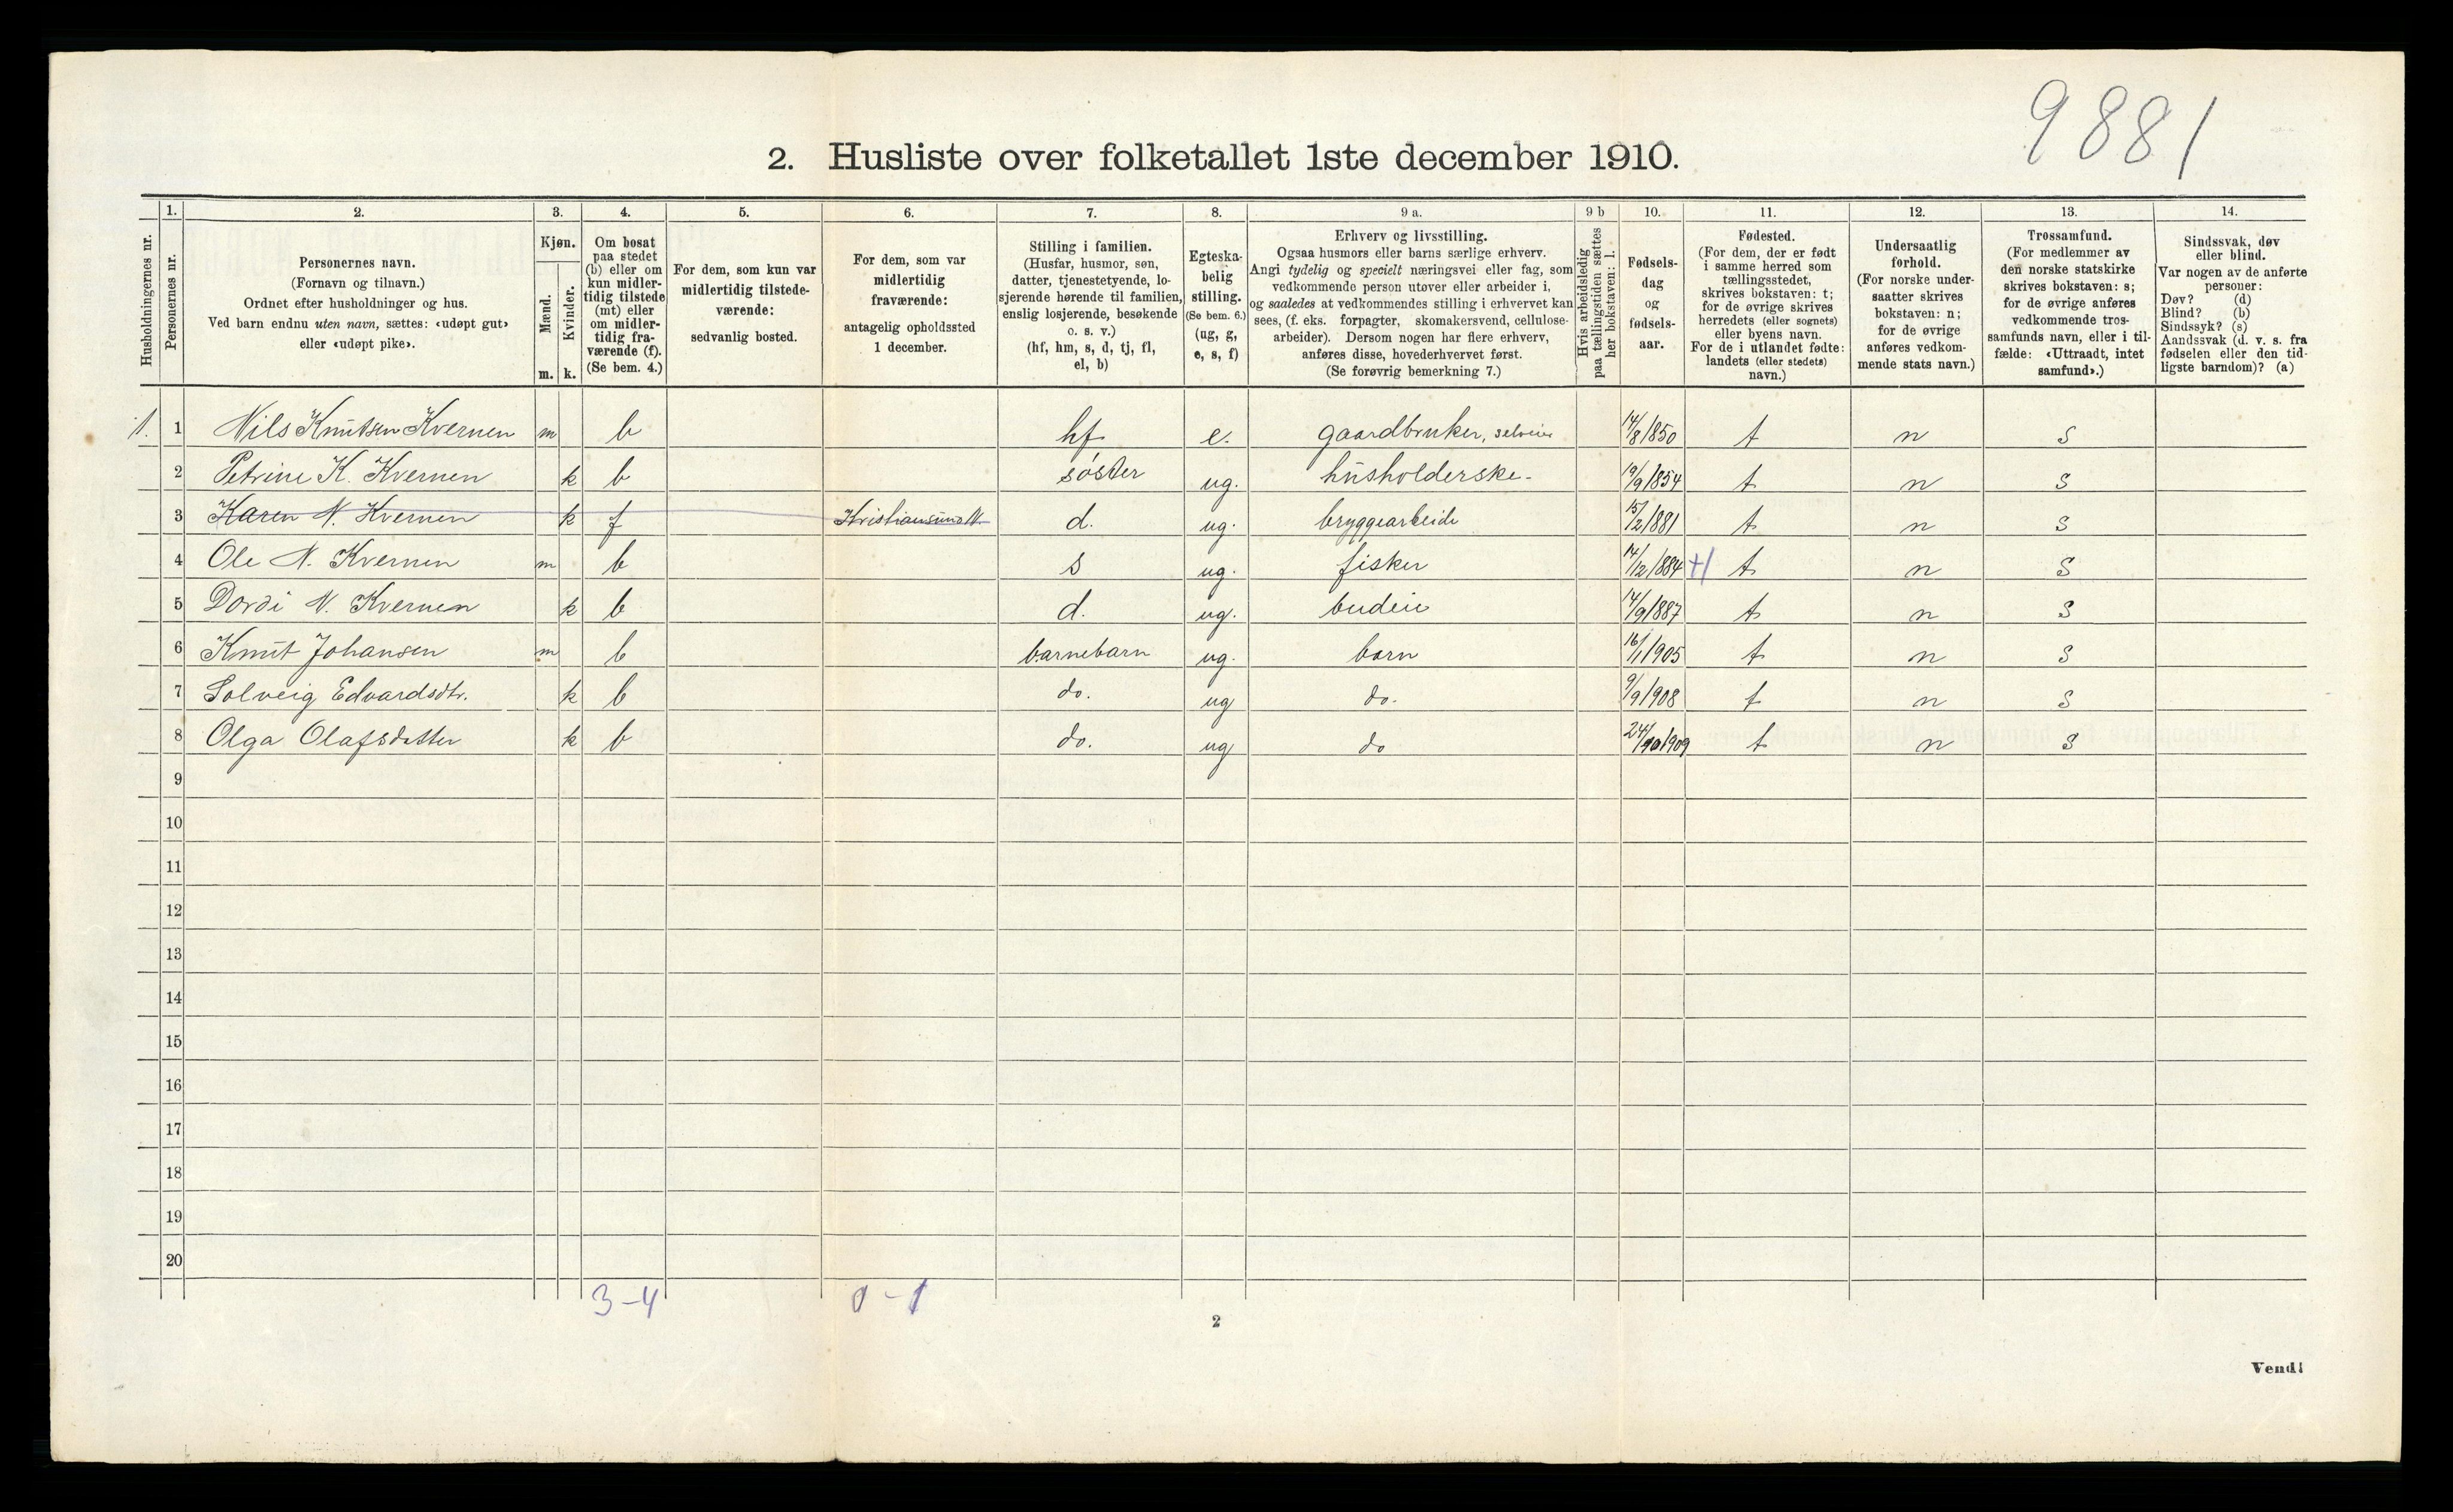 9881
2. Husliste over folketallet 1ste december 1910.
Husholdningernes nr.
1. Personernes nr.
2. Personernes navn.
(Fornavn og tilnavn.)
Ordnet efter husholdninger og hus.
Ved barn endnu uten navn, sættes: «udøpt gut»
eller «udøpt pike».
3. Kjøn.
Mænd. Kvinder.
m. k.
4. Om bosat
paa stedet
(b) eller om
kun midler-
tidig tilstede
(mt) eller
om midler-
tidig fra-
værende (f).
(Se bem. 4.)
5. For dem, som kun var
midlertidig tilstede-
værende:
sedvanlig bosted.
6. For dem, som var
midlertidig
fraværende:
antagelig opholdssted
1 december.
7. Stilling i familien.
(Husfar, husmor, søn,
datter, tjenestetyende, lo-
sjerende hørende til familien,
enslig losjerende, besøkende
o. s. v.)
(hf, hm, s, d, tj, fl,
el, b)
8. Egteska-
belig
stilling.
(Se bem. 6.)
(ug, g,
e, s, f)
9 a. Erhverv og livsstilling.
Ogsaa husmors eller barns særlige erhverv.
Angi tydelig og specielt næringsvei eller fag, som
vedkommende person utøver eller arbeider i,
og saaledes at vedkommendes stilling i erhvervet kan
sees, (f. eks. forpagter, skomakersvend, cellulose-
arbeider). Dersom nogen har flere erhverv,
anføres disse, hovederhvervet først.
(Se forøvrig bemerkning 7.)
9 b Hvis arbeidsledig
paa tællingstiden sættes
her bokstaven: l.
10. Fødsels-
dag
og
fødsels-
aar.
11. Fødested.
(For dem, der er født
i samme herred som
tællingsstedet,
skrives bokstaven: t;
for de øvrige skrives
herredets (eller sognets)
eller byens navn.
For de i utlandet fødte:
landets (eller stedets)
navn.)
12. Undersaatlig
forhold.
(For norske under-
saatter skrives
bokstaven: n;
for de øvrige
anføres vedkom-
mende stats navn.)
13. Trossamfund.
(For medlemmer av
den norske statskirke
skrives bokstaven: s;
for de øvrige anføres
vedkommende tros-
samfunds navn, eller i til-
fælde: «Uttraadt, intet
samfund».)
14. Sindssvak, døv
eller blind.
Var nogen av de anførte
personer:
Døv? (d)
Blind? (b)
Sindssyk? (s)
Aandssvak (d. v. s. fra
fødselen eller den tid-
ligste barndom)? (a)
1. 1 Nils Knutsen Kvernen m b hf e. gaardbruker, selveier 14/8 1850 t n s
2 Petrine K. Kvernen k b søster ug. husholderske. 19/9 1854 t n s
3 Karen N. Kvernen k f Kristiansund N. d. ug. bryggearbeide 15/2 1881 t n s
4 Ole N. Kvernen m b s ug. fisker 14/2 1884 t n s
5 Dordi N. Kvernen k b d. ug. budeie 14/9 1887 t n s
6 Knut Johansen m b barnebarn ug. barn 16/1 1905 t n s
7 Solveig Edvardsdtr. k b do. ug do. 9/9 1908 t n s
8 Olga Olafsdatter k b do. ug do 24/10 1909 t n s
9
10
11
12
13
14
15
16
17
18
19
20
3-4 0-1
2
Vend!